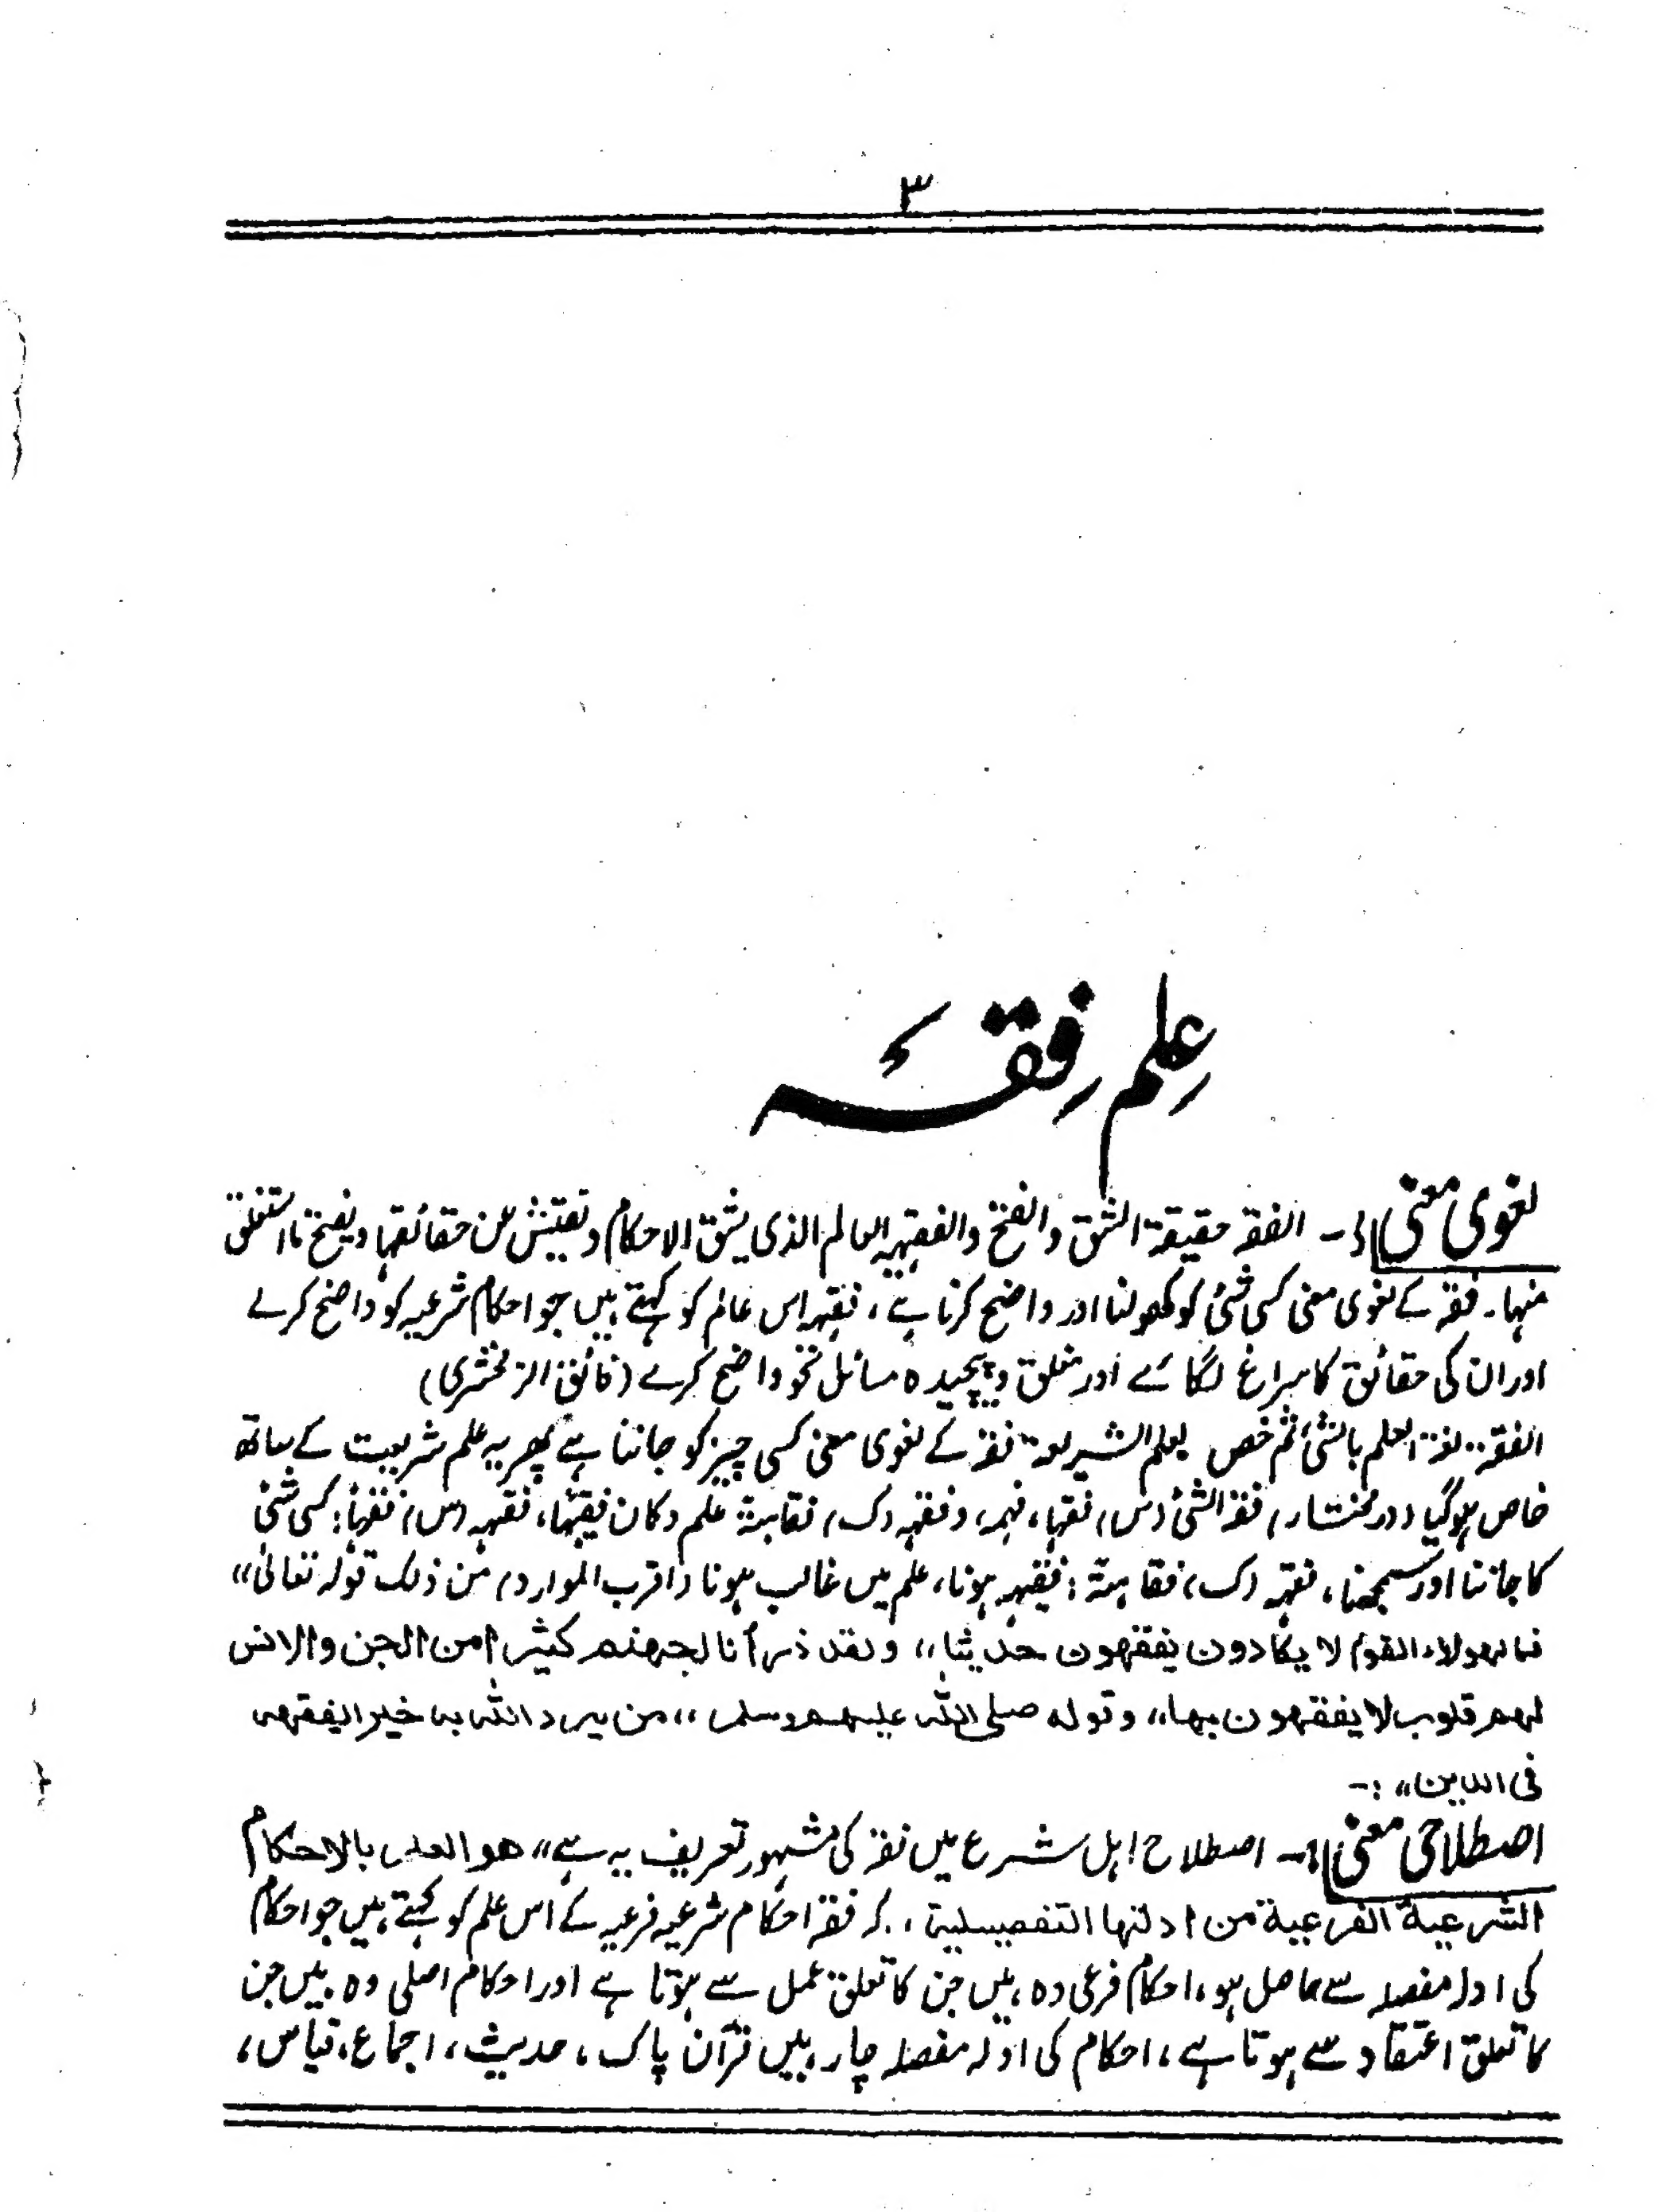 ۳
عِلم فِقہ
لغوی معنی :- الفقہ حقیقۃ الشق والفتح والفقیہ العالم الذی یشق الاحکام ویفتش عن حقائقہا ویفتح ما استغلق
منہا۔ فقہ کے لغوی معنی کسی شئ کو کھولنا اور واضح کرنا ہے ، فقیہ اس عالم کو کہتے ہیں جو احکام شرعیہ کو واضح کرلے
اور ان کی حقائق کا سراغ لگائے اور مغلق وپیچیدہ مسائل کو واضح کرے (فائق الزمخشری)
الفقہ :۔ لغۃ العلم بالشئ ثم خص بعلم الشریعۃ فقہ کے لغوی معنی کسی چیز کو جاننا ہے پھر یہ علم شریعت کے ساتھ
خاص ہوگیا (در مختار) فقہ الشئ (س) فقہا، فہمہ، وفقہہ (ک) فقاہۃ علم وکان فقیہًا، فقہہ (س) فقہًا: کسی شئی
کا جاننا اور سمجھنا، فقہہ (ک) فقاہۃ: فقیہہ ہونا، علم میں غالب ہونا (اقرب الموارد) من ذلک قولہ تعالیٰ ,,
فما لھولاء القوم لا یکادون یفقھون حدیثا ,, ولقد ذرأنا لجھنم کثیرا من الجن والانس
لھم قلوب لا یفقھون بھا ,, وقولہ صلی اللہ علیہ وسلم ,, من یرد اللہ بہ خیرا یفقھہ
فی الدین ,, :-
اصطلاحی معنی :- اصطلاح اہل شرع میں فقہ کی مشہور تعریف یہ ہے ,, ھو العلم بالاحکام
الشرعیۃ الفرعیۃ من ادلتہا التفصیلیۃ ، کہ فقہ احکام شرعیہ فرعیہ کے اس علم کو کہتے ہیں جو احکام
کی ادلہ مفصلہ سے حاصل ہو، احکام فرعی وہ ہیں جن کا تعلق عمل سے ہوتا ہے اور احکام اصلی وہ ہیں جن
کا تعلق اعتقاد سے ہوتا ہے ، احکام کی ادلہ مفصلہ چار ہیں قرآن پاک ، حدیث ، اجماع ، قیاس ،